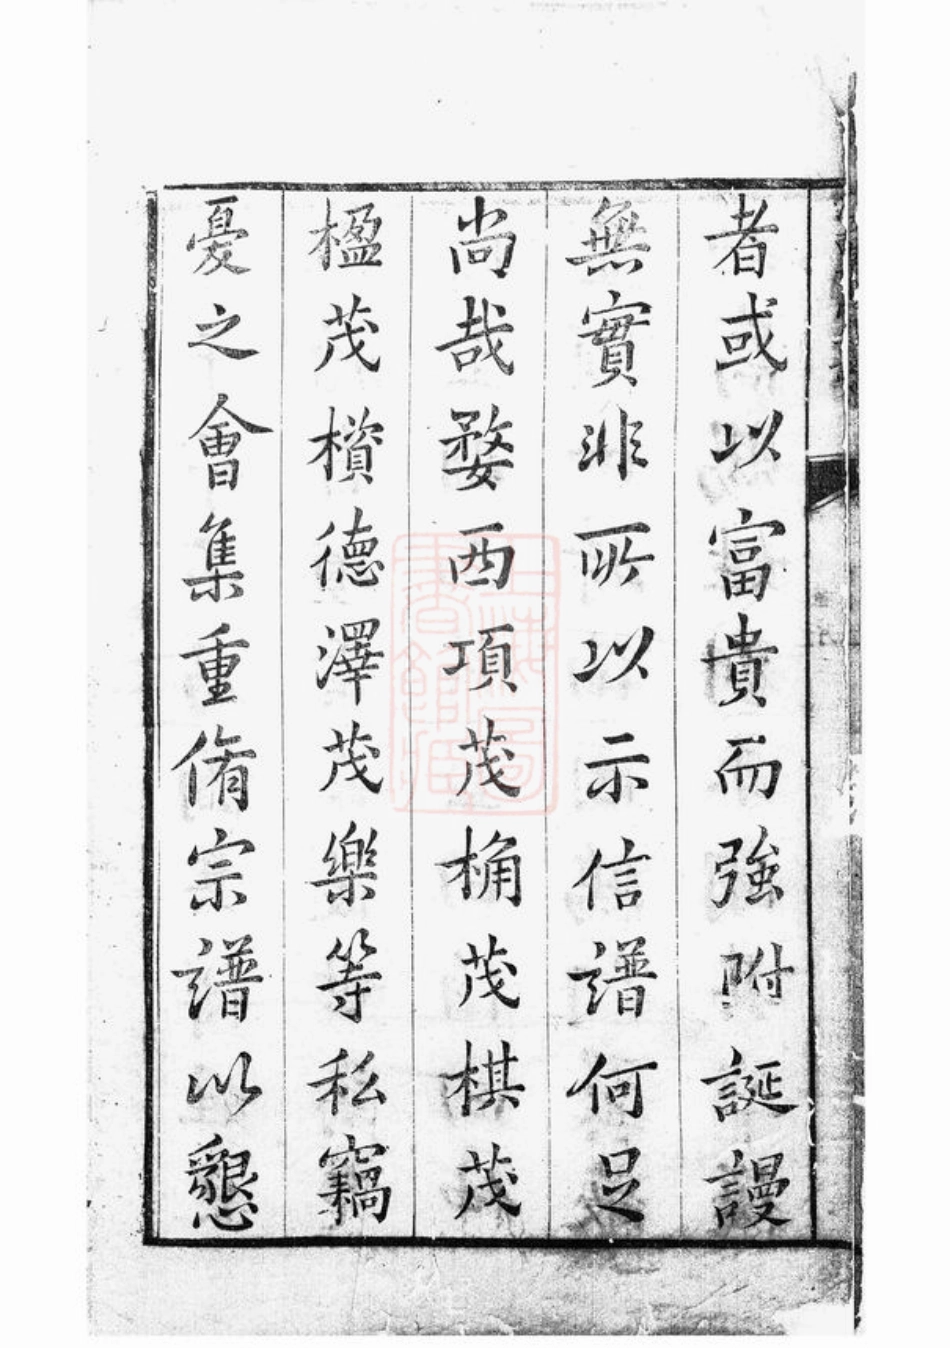 者或以富貴而強附誕謾
無實非所以示信譜何足
尚哉婺西項茂桷茂棋茂
楹茂樌德澤茂樂等私竊
憂之會集重脩宗譜以懇
上海圖書館藏